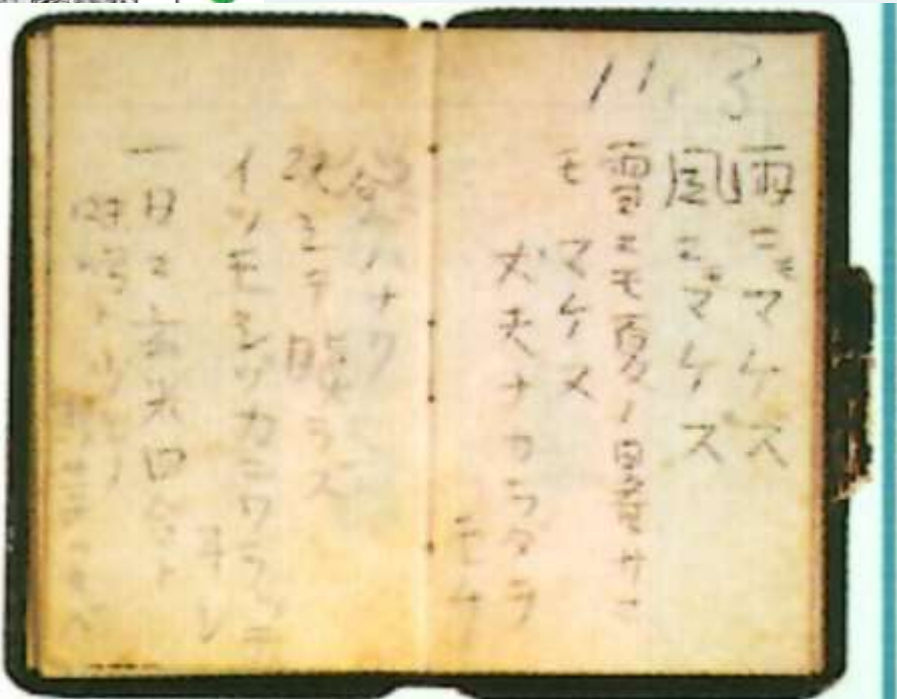 11.3
雨ニモマケズ
風ニモマケズ
雪ニモ夏ノ暑サニ
モ マケヌ
丈夫ナカラダヲ
モチ
慾ハナク
決シテ瞋ラズ
イツモシヅカニワラッテ
ヰル
一日ニ玄米四合ト
味噌ト少シノ